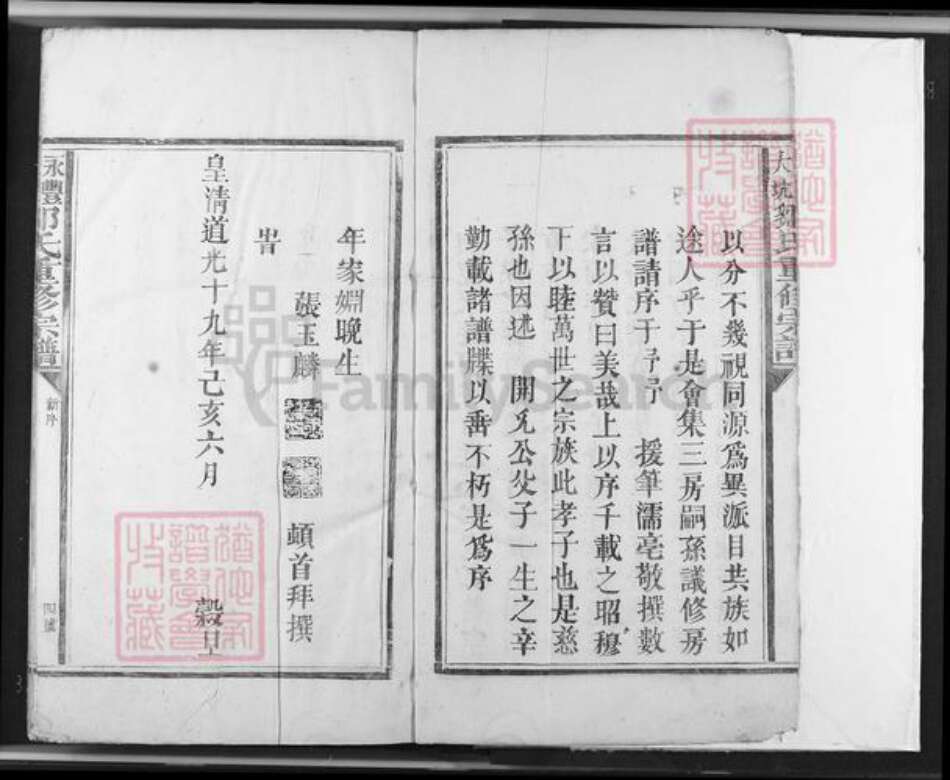 大坑鄧氏重修宗譜
以分不幾視同源為異派目共族如
途人乎于是會集三房嗣孫議修房
譜請序于予予 援筆濡亳敬撰數
言以贊曰美哉上以序千載之昭穆
下以睦萬世之宗族此孝子也是慈
孫也因述 開兄公父子一生之辛
勤載諸譜牒以垂不朽是為序
年家姻晚生
張玉麟 頓首拜撰
旹
皇清道光十九年己亥六月 穀旦
永豐鄧氏重修宗譜 新序
FamilySearch
譜學會
收藏